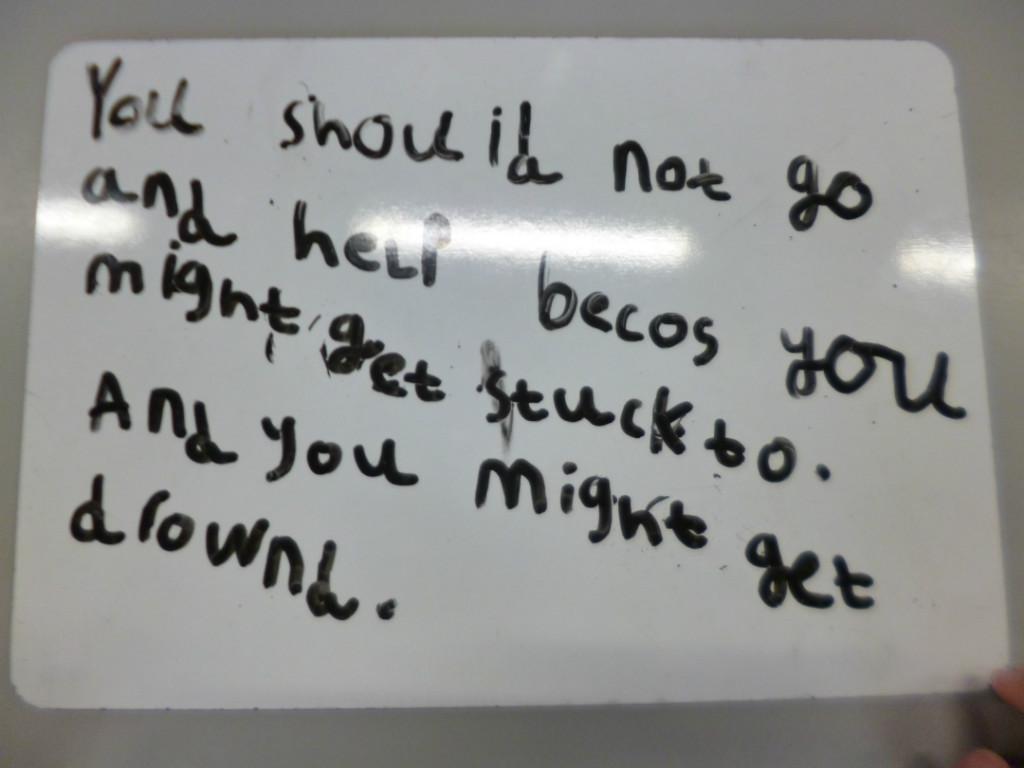 You should not go
and help becos you
might get stuck to.
And you might get
drownd.